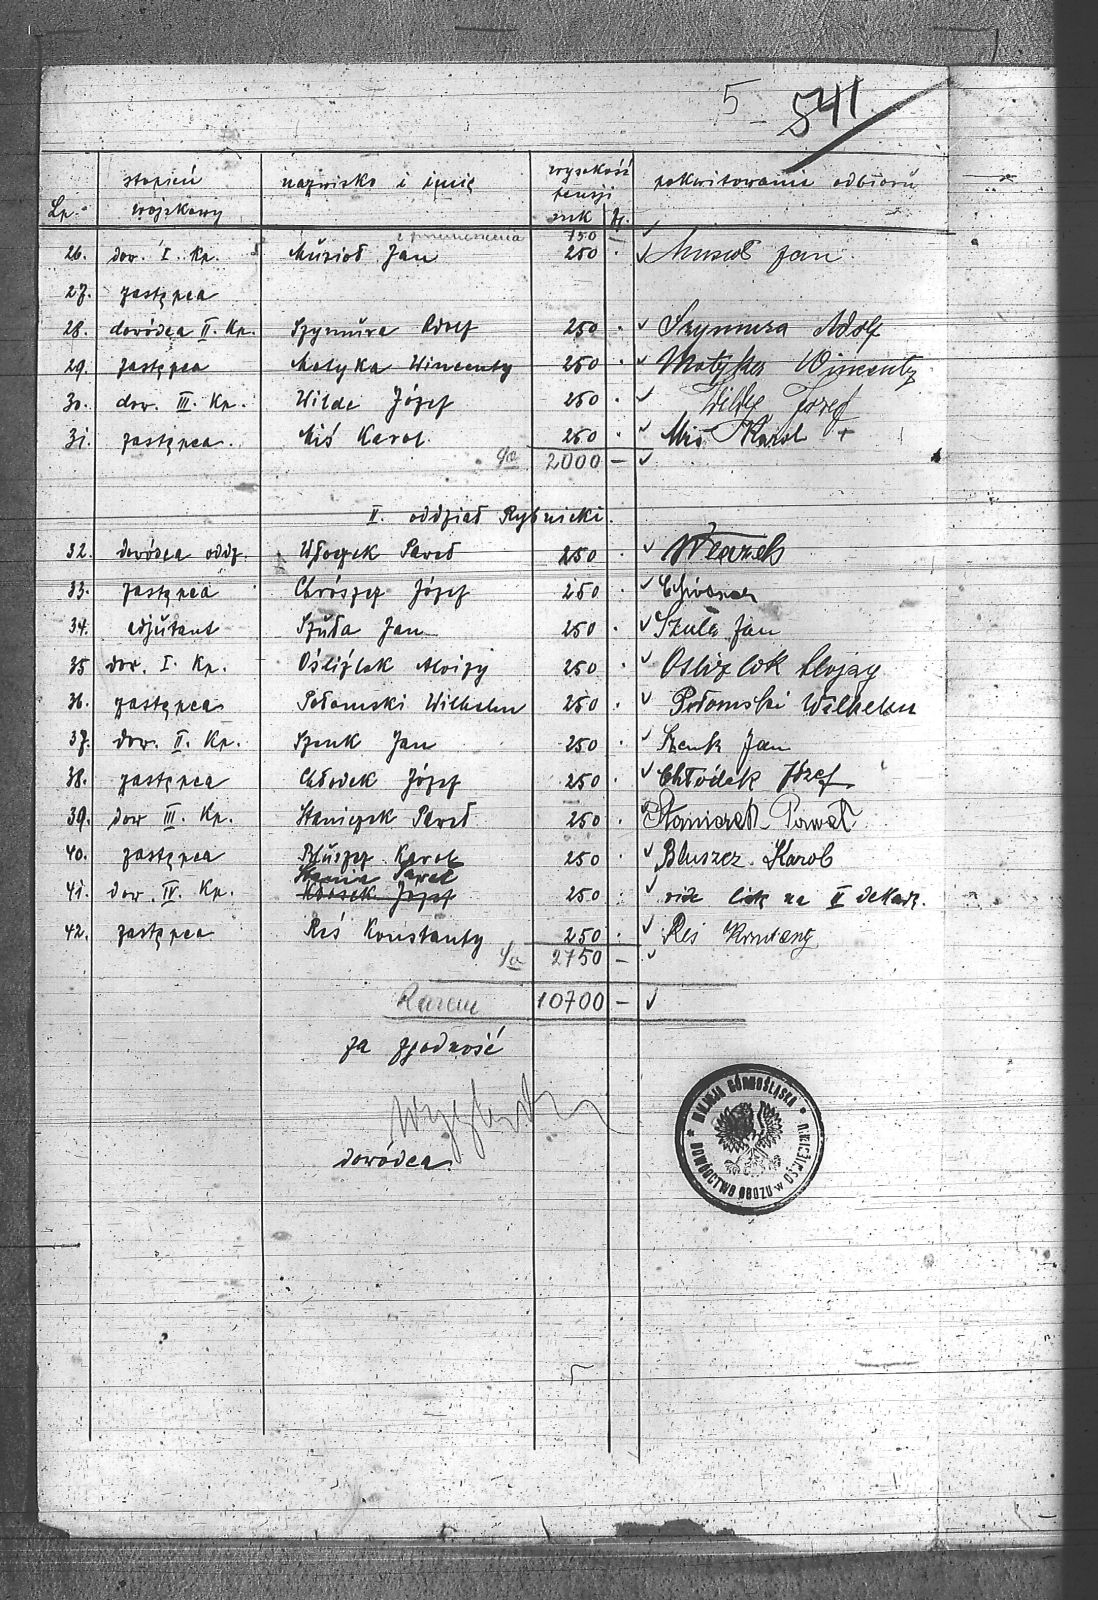 5 541
Lp. stopień wojskowy nazwisko i imię wysokość pensji mk f. pokwitowanie odbioru
z przeniesienia 750 —
26. dow. I. Kp. Musioł Jan 250 . Musioł Jan
27. zastępca
28. dowódca II. Kp. Szymura Adolf 250 . Szymura Adolf
29. zastępca Motyka Wincenty 250 . Motyka Wincenty
30. dow. III. Kp. Wilde Józef 250 . Wilde Jozef
31. zastępca. Miś Karol. 250 . Miś Karol +
2000 —
II. oddział Rybnicki.
32. dowódca oddz. Włoczek Paweł 250 .
33. zastępca Chrószcz Józef 250 .
34. adjutant Szuła Jan 250 . Szula Jan
35 dow. I. Kp. Oślizlok Aloizy 250 . Oslizlok Alojzy
36. zastępca Połomski Wilhelm 250 . Połomski Wilhelm
37. dow. II. Kp. Szenk Jan 250 . Szenk Jan
38. zastępca Chłodek Józef 250 . Chłódek Józef
39. dow III. Kp. Staniczek Paweł 250 . Staniczek Paweł
40. zastępca Bluszcz Karol 250 . Bluszcz Karol
Paweł
41. dow. IV. Kp. Józef 250 . na II dekadę.
42. zastępca Reś Konstanty 250 . Reś
2750 —
Razem 10700 —
za zgodność
dowódca.
MILICJA GÓRNOŚLĄSKA
DOWÓDCTWO OBOZU w OŚWIĘCIMIU